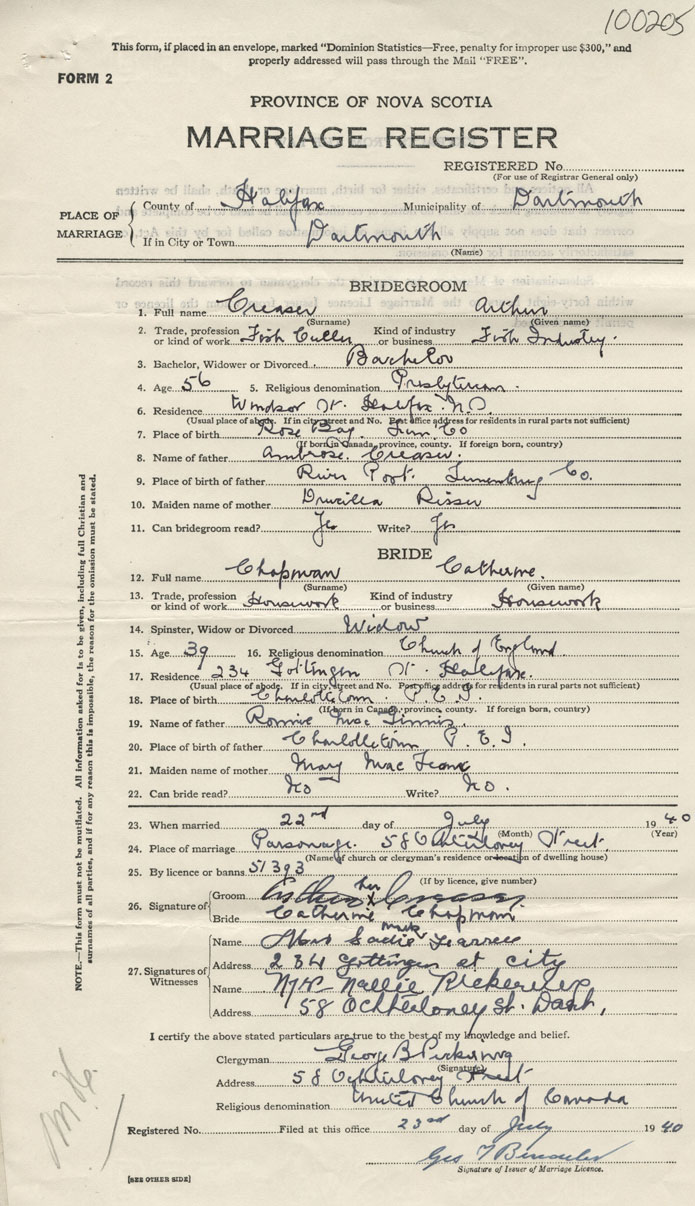 100205
This form, if placed in an envelope, marked "Dominion Statistics—Free, penalty for improper use $300," and
properly addressed will pass through the Mail "FREE".
FORM 2
PROVINCE OF NOVA SCOTIA
MARRIAGE REGISTER
REGISTERED No.
(For use of Registrar General only)
PLACE OF MARRIAGE
County of Halifax Municipality of Dartmouth
If in City or Town Dartmouth
(Name)
BRIDEGROOM
1. Full name Creaser Arthur
(Surname) (Given name)
2. Trade, profession or kind of work Fish Culler Kind of industry or business Fish Industry.
3. Bachelor, Widower or Divorced Bachelor
4. Age 56 5. Religious denomination Presbyterian.
6. Residence Windsor St. Halifax. N.S.
(Usual place of abode. If in city, street and No. Post office address for residents in rural parts not sufficient)
7. Place of birth Rose Bay. Lun. Co
(If born in Canada, province, county. If foreign born, country)
8. Name of father Ambrose Creaser.
9. Place of birth of father River Port. Lunenburg Co.
10. Maiden name of mother Drucilla Risser
11. Can bridegroom read? Yes Write? Yes
BRIDE
12. Full name Chapman Catherine.
(Surname) (Given name)
13. Trade, profession or kind of work Housework Kind of industry or business Housework
14. Spinster, Widow or Divorced Widow
15. Age 39 16. Religious denomination Church of England.
17. Residence 234 Gottingen St. Halifax.
(Usual place of abode. If in city, street and No. Post office address for residents in rural parts not sufficient)
18. Place of birth Charlottetown. P.E.I.
(If born in Canada, province, county. If foreign born, country)
19. Name of father Ronnie Mac Ginnis
20. Place of birth of father Charlottetown P.E.I
21. Maiden name of mother May Mac
22. Can bride read? No Write? No.
23. When married 22nd day of July 1940
(Month) (Year)
24. Place of marriage Parsonage. 58 Ochterloney Street.
(Name of church or clergyman's residence or location of dwelling house)
25. By licence or banns 51393
(If by licence, give number)
26. Signature of
Groom Arthur Creaser
her
Bride Catherine X Chapman.
mark
27. Signatures of Witnesses
Name Mrs Sadie
Address 234 Gottingen St city
Name Mrs Nallie Pickering
Address 58 Ochterloney St. Dart.
I certify the above stated particulars are true to the best of my knowledge and belief.
Clergyman George B Pickering
(Signature)
Address 58 Ochterloney Street
Religious denomination United Church of Canada
Registered No. Filed at this office 23rd day of July 1940
Geo T
Signature of Issuer of Marriage Licence.
[SEE OTHER SIDE]
NOTE.—This form must not be mutilated. All information asked for is to be given, including full Christian and
surnames of all parties, and if for any reason this is impossible, the reason for the omission must be stated.